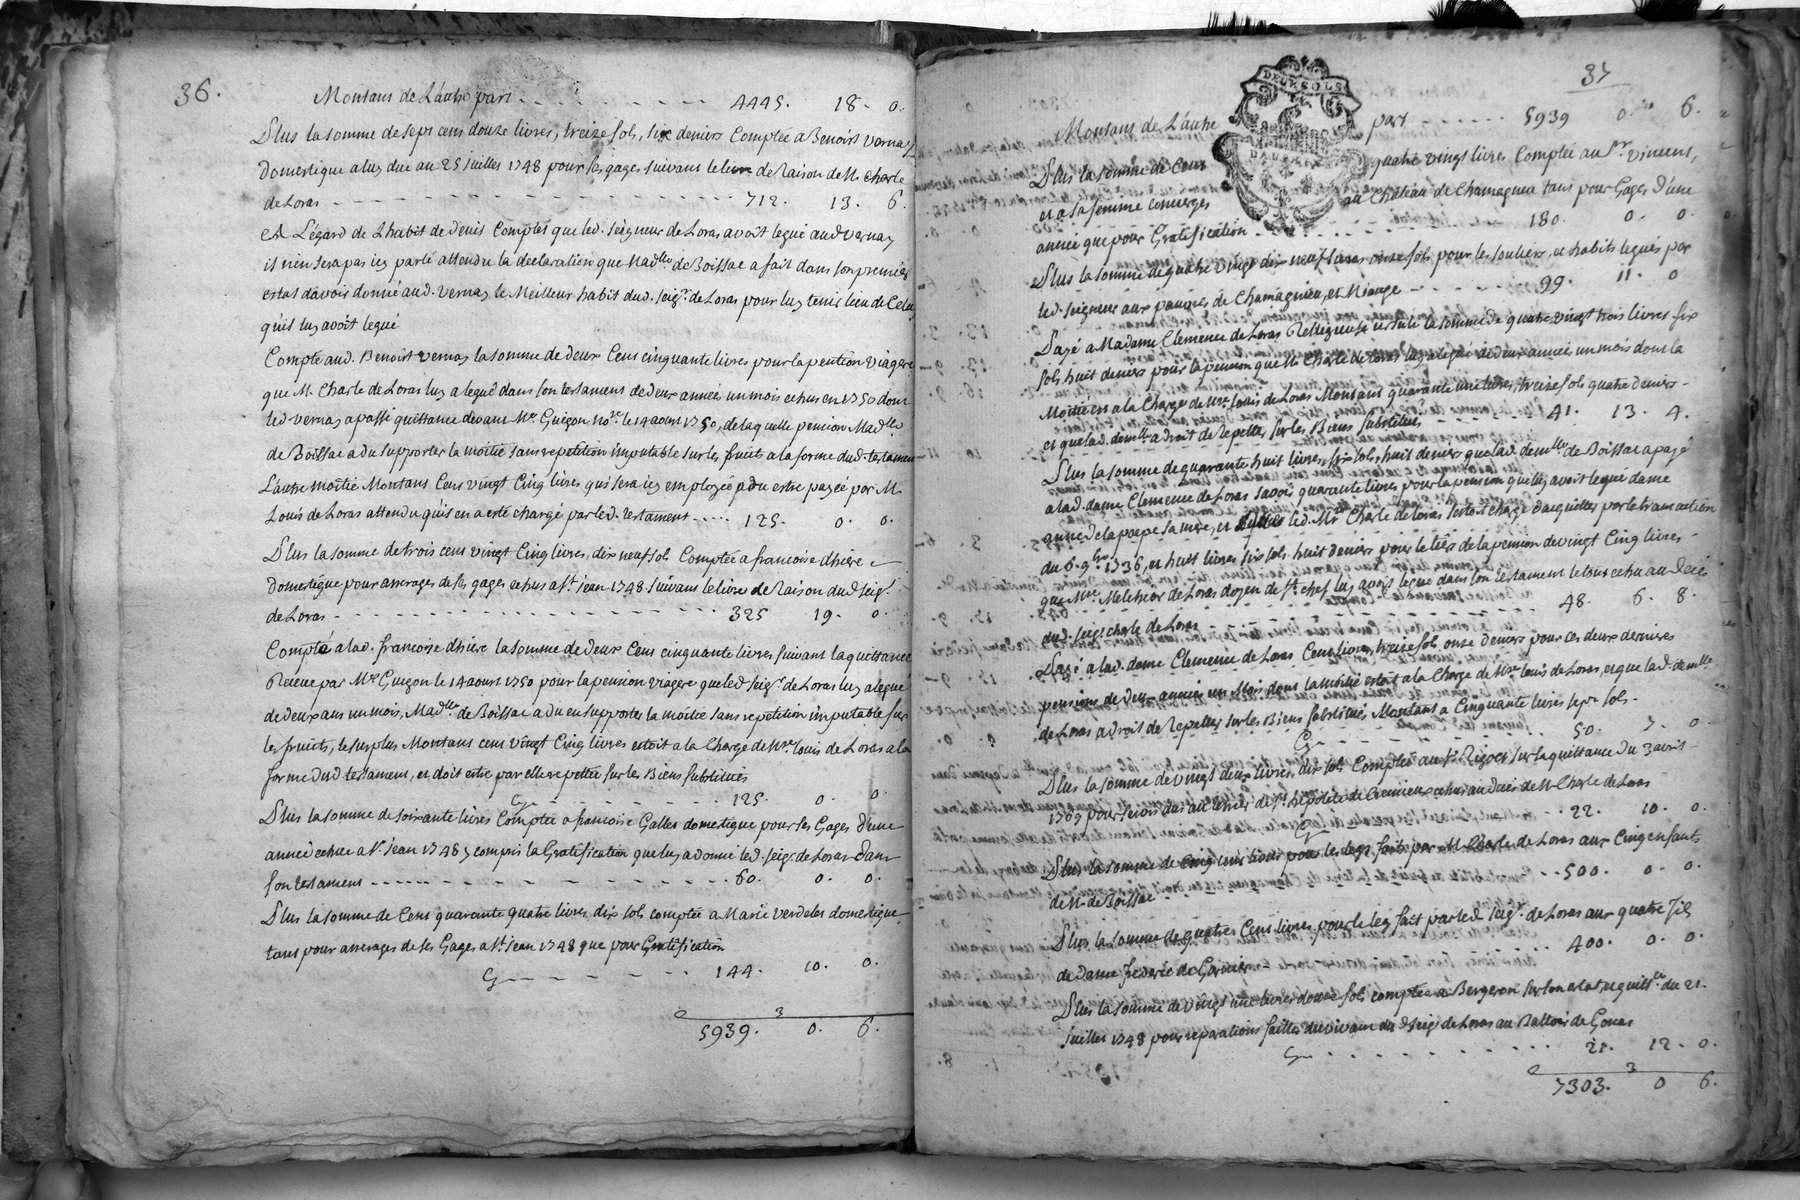 36.
Montant de L'autre part - - - - - - - 4445. 18 - 0.
Plus la somme de sept cent douze livres, treize sols, six deniers Comptée a Benoist Vernay
domestique a luy due au 25 juillet 1748 pour ses gages suivant le livre de Raison de M. Charle
de Loras - - - - - - - 712. 13. 6.
A L'égard de L'habit de deuil Comptés que led. seigneur de Loras avoit legué aud Vernay
il n'en sera pas icy parlé attendu la declaration que Madlle de Boissac a fait dans son premier
estat d'avoir donné aud. Vernay le Meilleur habit dud. seigr. de Loras pour luy tenir lieu de Celuy
qu'il luy avoit legué
Compté aud. Benoist Vernay la somme de deux Cent cinquante livres pour la pention viagere
que M. Charle de Loras luy a legué dans son testament de deux années un mois echus en 1750 dont
led. Vernay a passé quittance devant Me. Guigon nore. le 14 aout 1750, de laquelle pension Madlle
de Boissac a du supporter la moitié sans repetition imputable sur les fruits a la forme dud. testament
L'autre moitié Montant Cent vingt Cinq livres qui sera icy employée a du estre payée par M.
Louis de Loras attendu qu'il en a esté chargé par led. testament - - - - 125. 0. 0.
Plus la somme de trois cent vingt Cinq livres, dix neuf sols Comptée a francoise dhiere
domestique pour arrerages de ses gages echus a St. jean 1748. suivant le livre de Raison dud. seigr.
de Loras - - - - - - - 325 19 - 0.
Compté a lad. francoise dhiere la somme de deux Cent cinquante livres suivant la quittance
Receue par Me Guigon le 14 aout 1750 pour la pension viagere que led. seigr. de Loras luy a legué
de deux ans un mois, Madlle. de Boissac a du en supporter la moitié sans repetition imputable sur
les fruits, le surplus Montant cent vingt Cinq livres estoit a la Charge de Mre. Louis de Loras a la
forme dud testament, et doit estre par elle repettée sur les Biens substitués
Cy - - - - - - - 125. 0. 0.
Plus la somme de soixante livres Comptée a francoise Galles domestique pour ses Gages d'une
année echue a St. jean 1748 y compris la Gratification que luy a donné led. seigr. de Loras dans
son testament - - - - - - - 60. 0. 0.
Plus la somme de Cent quarante quatre livres dix sols comptée a Marie Verdelet domestique
tant pour arrerages de ses Gages a St. jean 1748 que pour Gratification
Cy - - - - - - - 144. 10. 0.
3
5939. 0. 6.
37
Montant de L'autre part - - - - - - 5939 0. 6.
Plus la somme de Cent quatre vingt livres Comptée au Sr. Vincent,
et a sa femme concierges au Château de Chamagnieu tant pour Gages d'une
année que pour Gratification - - - - - - 180. 0. 0.
Plus la somme de quatre vingt dix neuf livres onze sols pour les souliers, et habits legués par
led. seigneur aux pauvres de Chamagnieu, et Mianges - - - - - - 99. 11. 0
Payé a Madame Clemence de Loras Relligieuse la somme de quatre vingt trois livres six
sols huit deniers pour la pension que M. Charle de Loras luy a legué de deux années un mois dont la
Moitié est a la Charge de Mre. Louis de Loras Montant quarante une livres, treize sols quatre deniers -
et que lad. demlle a droit de repetter sur les Biens substitués - - - - 41. 13. 4.
Plus la somme de quarante huit livres, six sols, huit deniers que lad. demlle. de Boissac a payé
a lad. dame Clemence de Loras savoir quarante livres pour la pension que luy avoit legué dame
anne de la poepe sa mere, et led. Mre Charle de Loras s'estoit chargé d'acquitter par le transaction
du 6. 9bre. 1736, et huit livres six sols huit deniers pour le tiers de la pension de vingt Cinq livres -
que Mre. Melchior de Loras doyen de St. chef luy avoit legué dans son testament le tout echu au deces
dud. seigr. charle de Loras - - - - - - 48. 6. 8.
Payé a lad. dame Clemence de Loras Cent livres, treize sols onze deniers pour ces deux dernieres
pensions de deux années un Mois dont la moitié estoit a la Charge de Mre Louis de Loras, et que lad. demlle
de Loras a droit de Repetter sur les Biens substitués Montant a Cinquante livres sept sols -
Cy - - - - - - 50. 7. 0
Plus la somme de vingt deux livres, dix sols Comptée au Sr. Rigoct sur la quittance du 3 avril -
1763 pour servis dus au terrier de St. hipolite de Cremieu echus au deces de M. Charle de Loras
Cy - - - - - - 22. 10. 0.
Plus la somme de Cinq cent livres pour les legs faits par M Charle de Loras aux Cinq enfants
de M. de Boissac - - - - - - 500. 0. 0.
Plus la somme de quatre Cent livres pour le leg fait par led. seigr. de Loras aux quatre fils
de dame de Garnier - - - - - - 400. 0. 0.
Plus la somme de vingt une livres douze sols comptée a Bergeron sur son etat du 21.
juillet 1748 pour reparations faittes du vivant dud seigr. de Loras au Battoir de Gonas
Cy - - - - - - 21. 12. 0.
3
7303. 0 6.